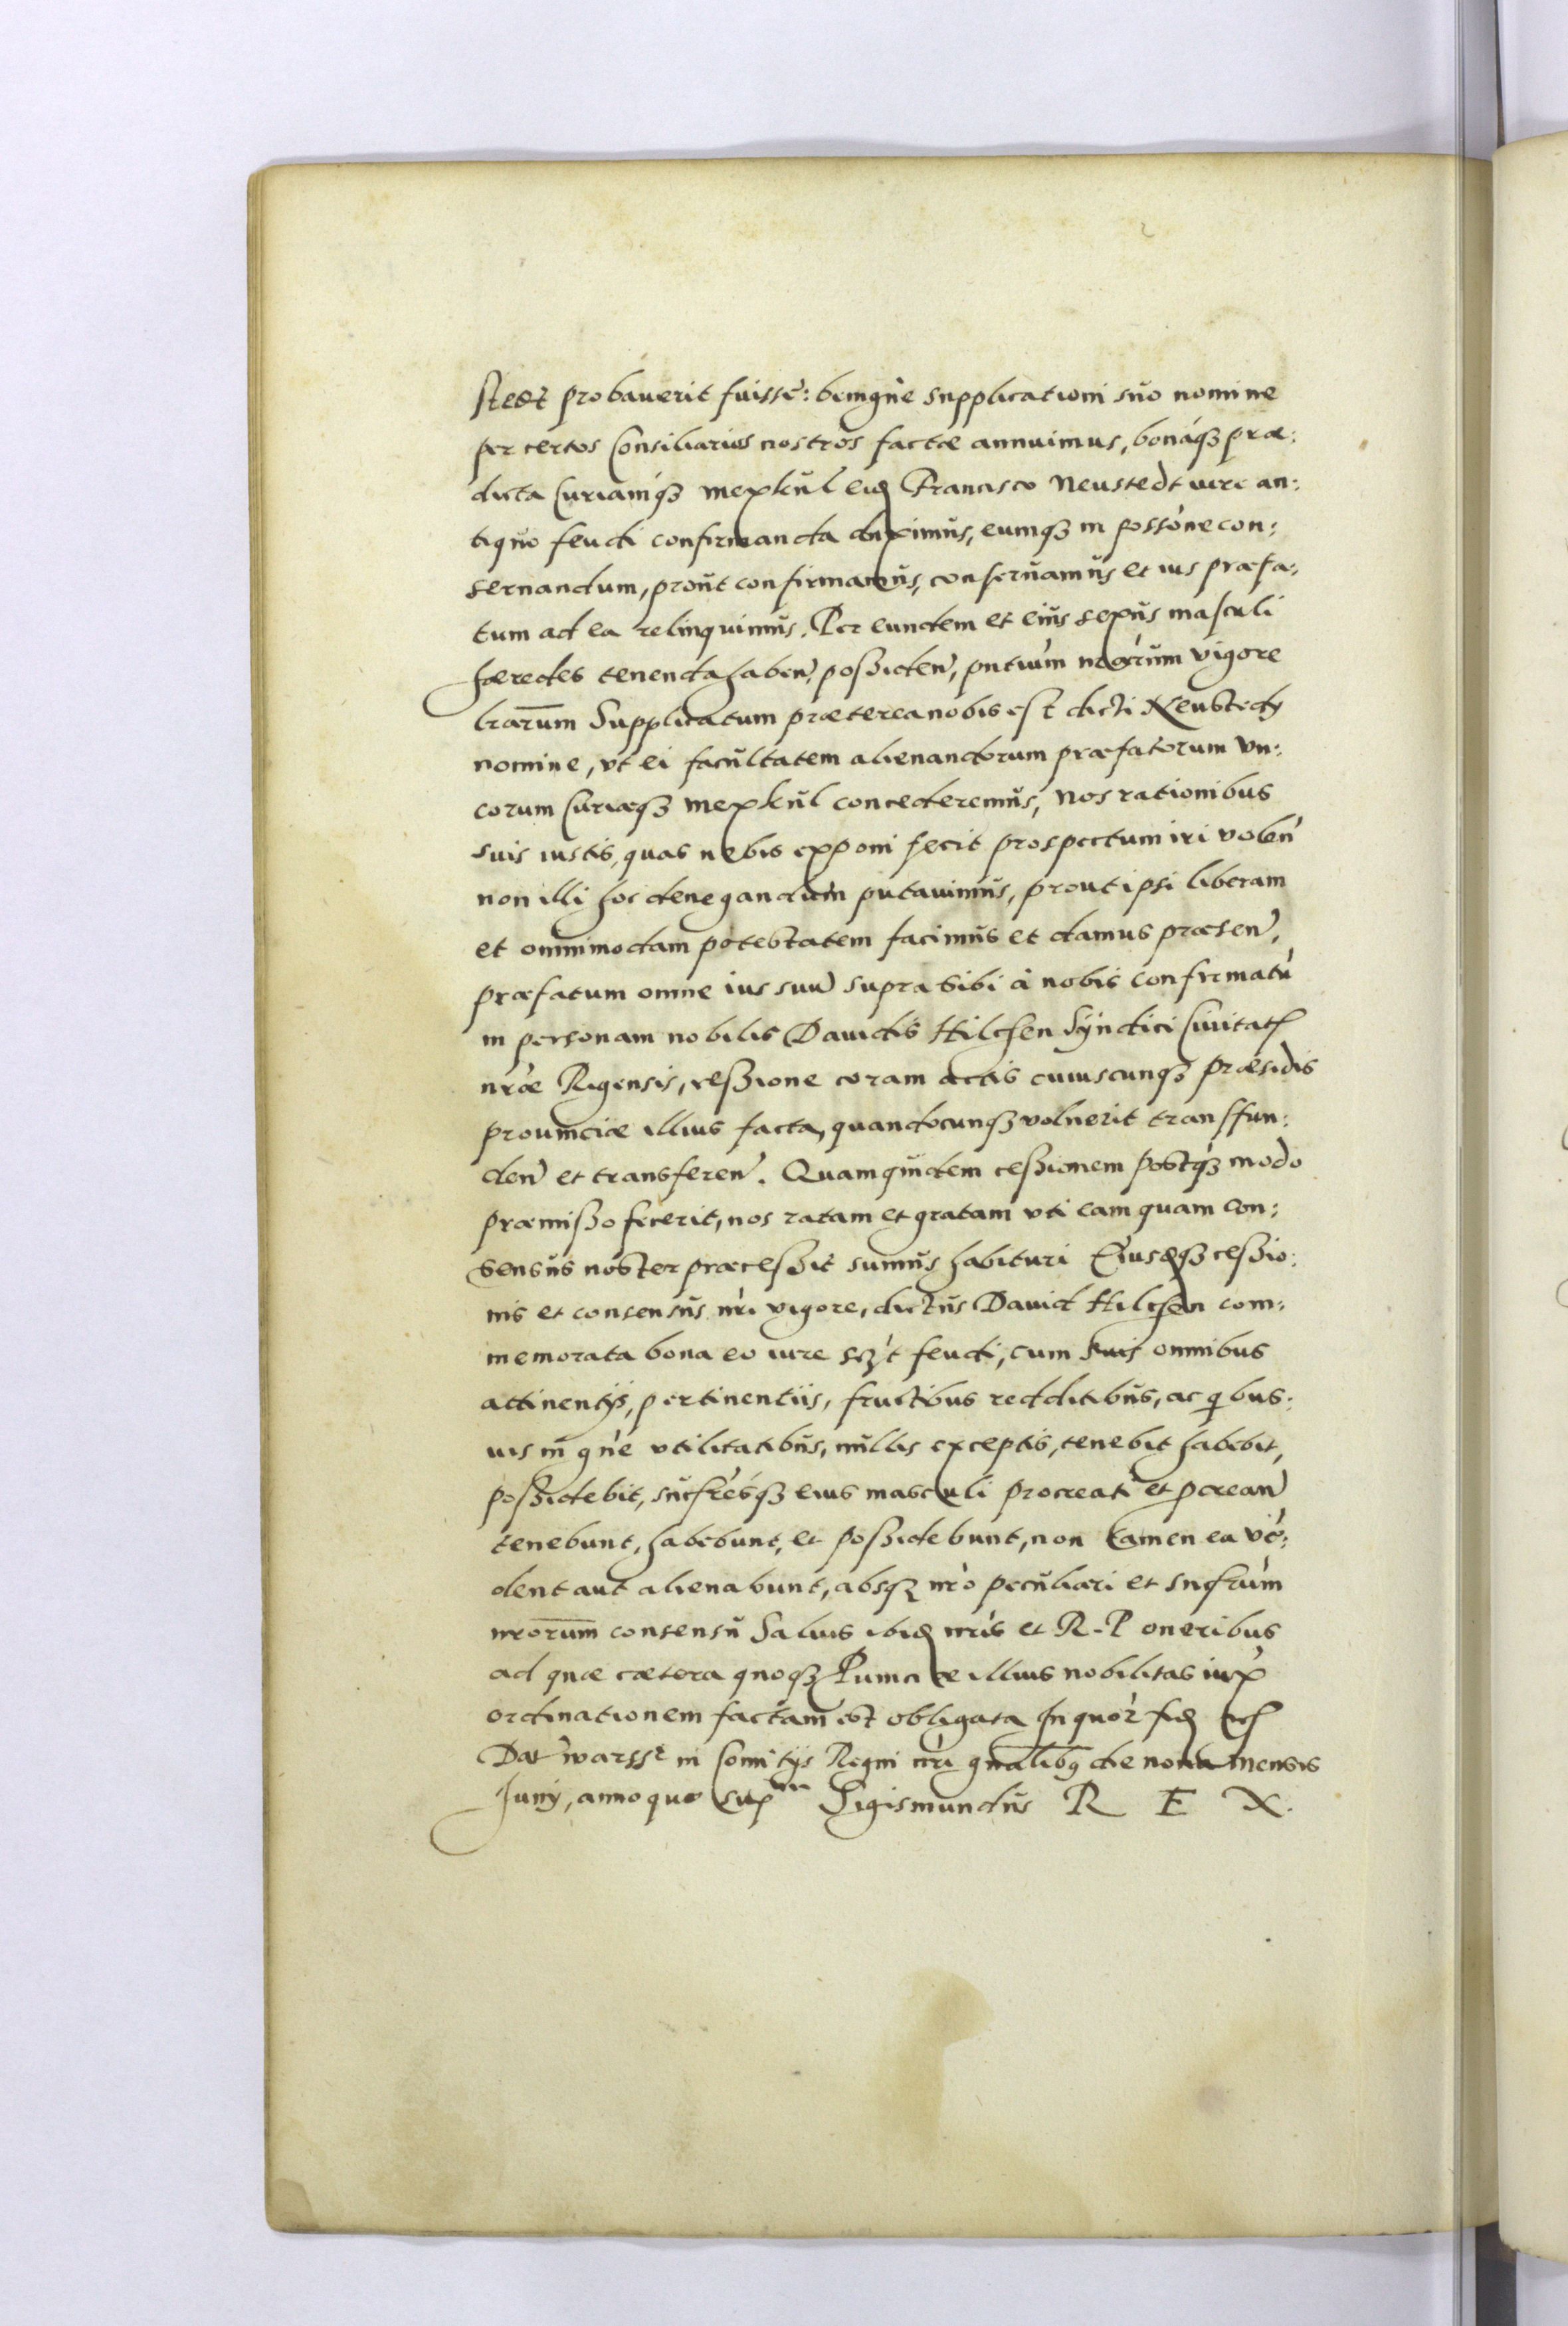 stedt probauerit fuisse: benigne supplicationi suo nomine
per certos Consiliarios nostros factæ annuimus, bonáq3 præ:
dicta Curiamq3 Mexkul eid Francisco Neustedt iure an:
tiquo feudi confirmanda duximus, eumq3 in possone con:
seruandum, prout confirmamus, conseruamus et ius præfa:
tum ad ea relinquimus. Per eundem et eius sexus masculi
hæredes tenenda haben, possiden, pntium nrarum vigore
lrarum Supplicatum præterea nobis est dicti Neustedy
nomine, vt ei facultatem alienandorum præfatorum vn:
corum Curiæq3 Mexkul concederemus, Nos rationibus
suis iustis, quas nobis exponi fecit prospectum iri volen
non illi hoc denegandum putauimus, prout ipsi liberam
et omnimodam potestatem facimus et damus præsen,
præfatum omne ius suu supra sibi à nobis confirmatu
in personam nobilis Dauidis Hilchen Syndici Ciuitat
nræ Rigensis, cessione coram actis cuiuscunq3 præsidis
prouinciæ illius facta, quandocunq3 voluerit transfun:
den et transferen. Quamquidem cessionem postq3 modo
præmisso fecerit, nos ratam et gratam vti eam quam con:
sensus noster præcessit sumus habituri Eiusdq3 cessio:
nis et consensus nri vigore, dictus Dauid Hilchen com:
memorata bona eo iure sz't feudi, cum suis omnibus
attinentijs, pertinentiis, fructibus redditibus, ac qbus:
uis in gne vtilitatibus, nullis exceptis, tenebit habebit,
possidebit, sucsresq3 eius masculi procreati et pcrean
tenebunt, habebunt, et possidebunt, non tamen ea ve:
dent aut alienabunt, absq3 nro peculiari et sucsrum
nrorum consensu Saluis ibid nris et R. P oneribus
ad quæ cætera quoq3 Puinciæ illius nobilitas iux
ordinationem factam est obligata In quor fid
Dat warss in Comitijs Regni nri gnalibq die nona Mensis
Junij, anno quo sup Sigismundus R E X.